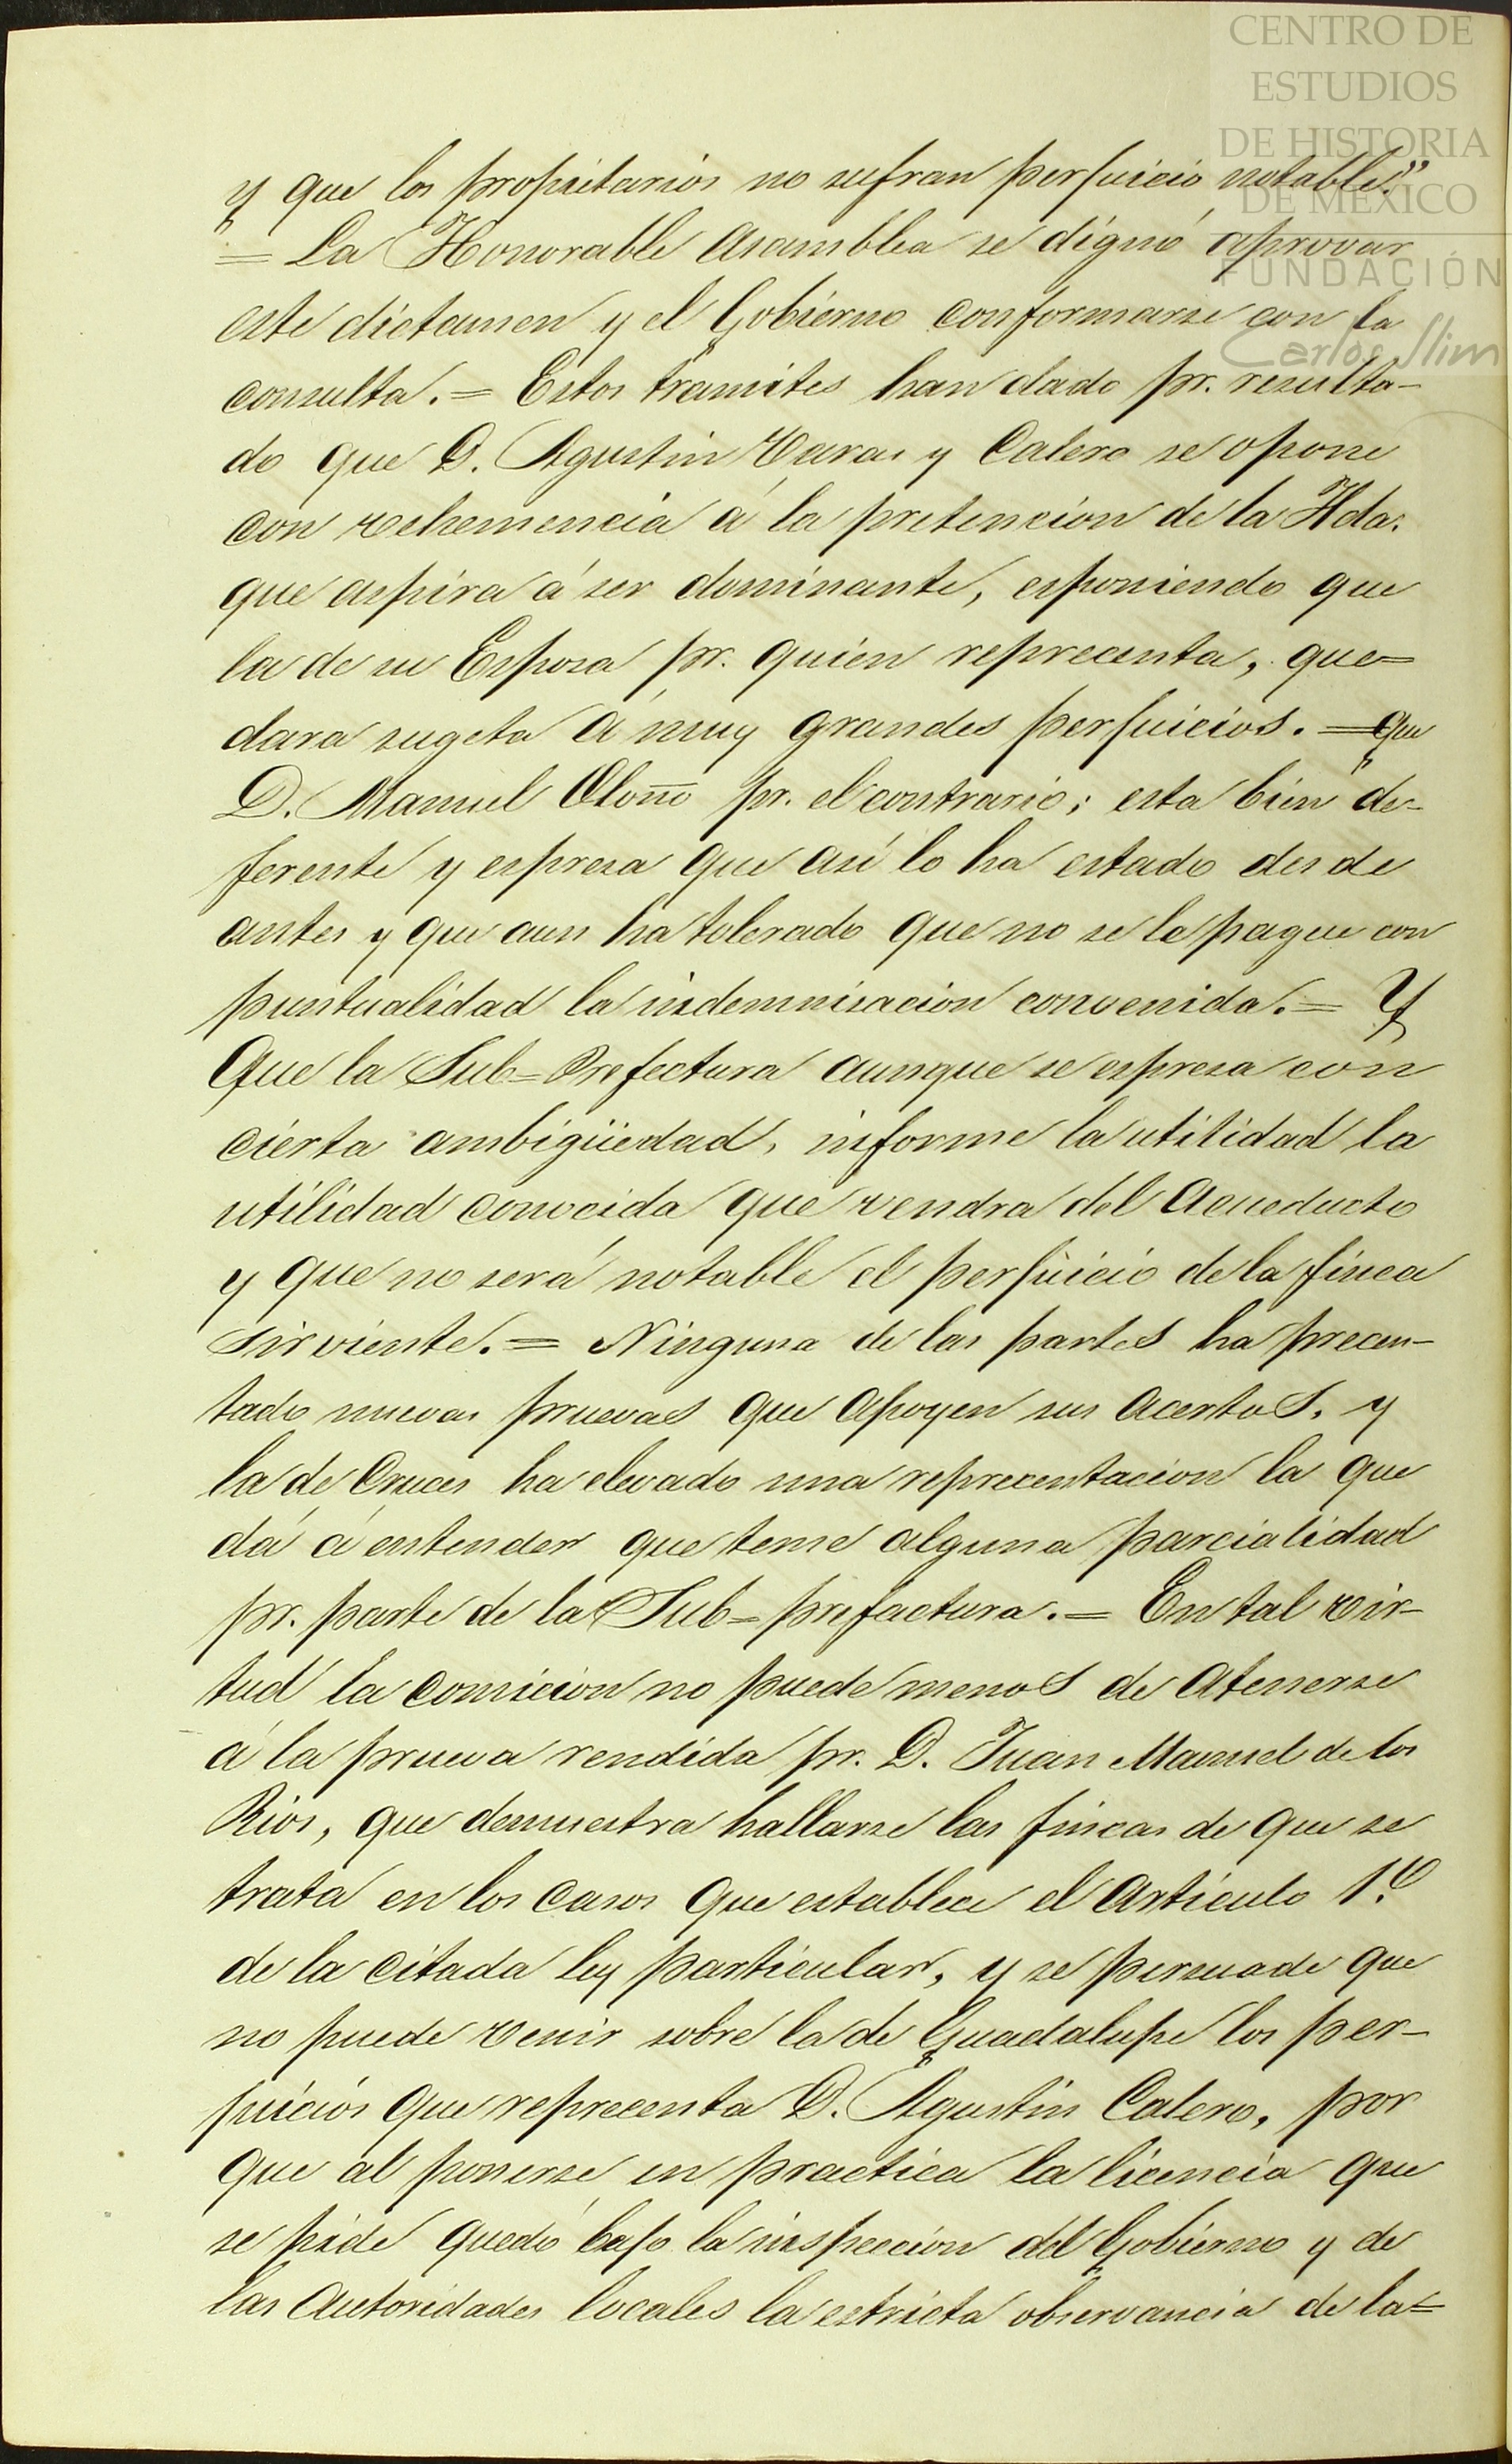 CENTRO DE
ESTUDIOS
DE HISTORIA
DE MÉXICO
FUNDACIÓN
Carlos Slim
y que los propietarios no sufran perjuicio notable."
= La Honorable Asamblea se dignó aprovar
este dictamen y el Gobierno conformarse con la
consulta. = Estos tramites han dado pr. resulta-
do que D. Agustin Varas y Calero se opone
con vehemencia á la pretencion de la Hda.
que aspira á ser dominante, esponiendo que
la de su Esposa pr. quien reprecenta, que=
dara sugeta á muy grandes perjuicios. = que
D. Manuel pr. el contrario; esta bien de-
ferente y espresa que así lo ha estado desde
antes y que aun ha tolerado que no se le pague con
puntualidad la indemnisacion convenida. = Y
Que la Sub=Prefectura aunque se espresa con
cierta ambigüedad, informe la utilidad la
utilidad conocida que vendra del Acueducto
y que no será notable el perjuicio de la finca
sirviente. = Ninguna de las partes ha precen-
tado nuevas pruevas que apoyen sus acertos, y
la de Cruces ha elevado una reprecentacion la que
dá á entender que teme alguna parcialidad
pr. parte de la Sub=prefactura. = En tal vir-
tud la comicion no puede menos de atenerse
á la prueva rendida pr. D. Juan Manuel de los
Rios, que demuestra hallarse las fincas de que se
trata en los casos que establece el Artículo 1.º
de la citada ley particular, y se persuade que
no puede venir sobre la de Guadalupe los per-
juicios que reprecenta D. Agustin Calero, por
que al ponerse en practica la licencia que
se pide quedó bajo la inspeccion del Gobierno y de
las Autoridades locales la estricta observancia de la=